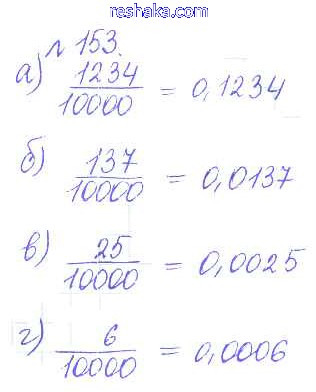 reshaka.com
№ 153.
а) 1234/10000 = 0,1234
б) 137/10000 = 0,0137
в) 25/10000 = 0,0025
г) 6/10000 = 0,0006